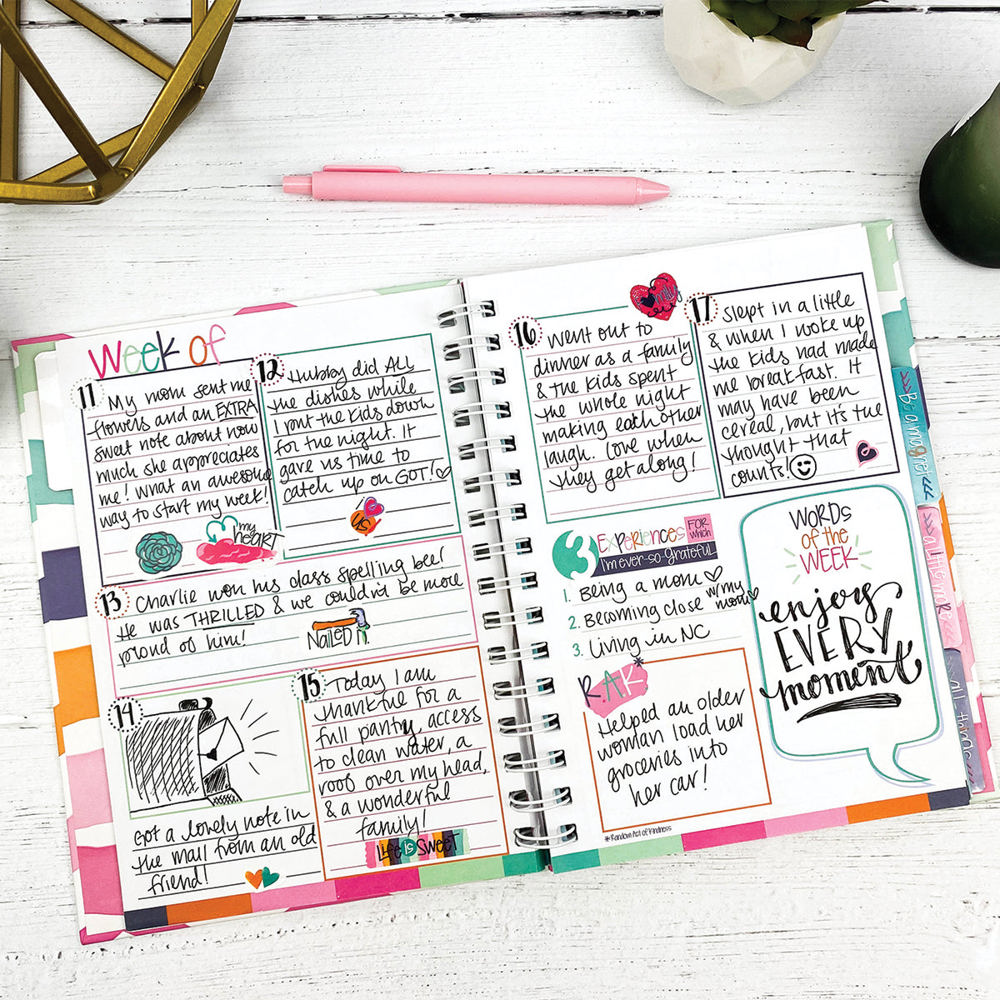 Week of
11
My mom sent me
flowers and an EXTRA
sweet note about how
much she appreciates
me! What an awesome
way to start my week!
my
heart
12
Hubby did ALL
the dishes while
I put the kids down
for the night. It
gave us time to
catch up on GOT!
13
Charlie won his class spelling bee!
He was THRILLED & we couldn't be more
proud of him!
Nailed it
14
Got a lovely note in
the mail from an old
friend!
15
Today I am
thankful for a
full pantry, access
to clean water, a
roof over my head,
& a wonderful
family!
Life is Sweet
16
Went out to
dinner as a family
& the kids spent
the whole night
making each other
laugh. Love when
they get along!
family
17
Slept in a little
& when I woke up
the kids had made
me breakfast. It
may have been
cereal, but it's the
thought that
counts!
3 Experiences FOR which
I'm ever-so-grateful
1. Being a mom
2. Becoming close w/my mom
3. Living in NC
R.A.K*
Helped an older
woman load her
groceries into
her car!
*Random Act of Kindness
WORDS
of the
WEEK
enjoy
EVERY
moment
a little more